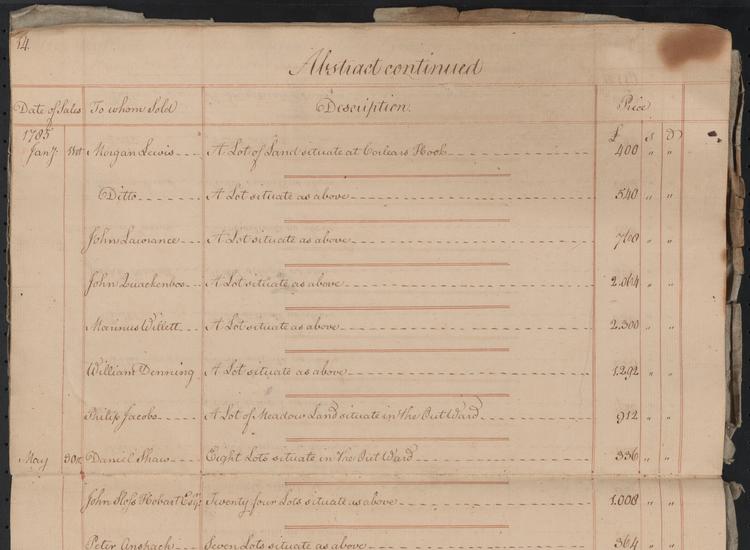 14.
Abstract continued
Date of Sales To whom Sold Description. Price
1785 £ s D
Jany. 31st Morgan Lewis A Lot of Land situate at Corlears Hook 400 " "
Ditto A Lot situate as above 540 " "
John Lawrance A Lot situate as above 760 " "
John Quackenbos A Lot situate as above 2.064 " "
Marinus Willett A Lot situate as above 2.300 " "
William Denning A Lot situate as above 1.292 " "
Philip Jacobs A Lot of Meadow Land situate in The Out Ward 912 " "
May 30th Daniel Shaw Eight Lots situate in The Out Ward 336 " "
John Sloss Hobart Esqr. Twenty four Lots situate as above 1.008 " "
Peter Anspach Seven Lots situate as above 364 " "